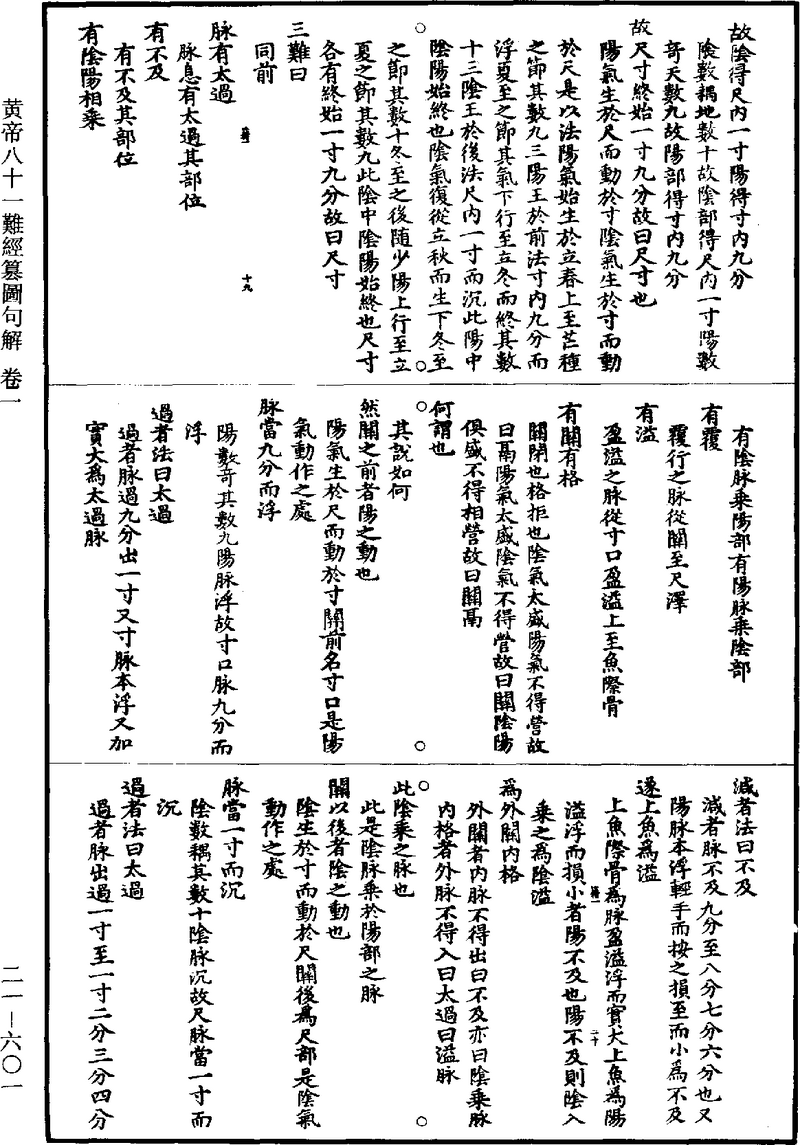 故陰得尺內一寸陽得寸內九分
陰數耦地數十故陰部得尺內一寸陽數
奇天數九故陽部得寸內九分
故尺寸終始一寸九分故曰尺寸也
陽氣生於尺而動於寸陰氣生於寸而動
於尺是以法陽氣始生於立春上至芒種
之節其數九三陽王於前法寸內九分而
浮夏至之節其氣下行至立冬而終其數
十三陰王於後法尺內一寸而沉此陽中
陰陽始終也陰氣復從立秋而生下冬至
之節其數十冬至之後隨少陽上行至立
夏之節其數九此陰中陰陽始終也尺寸
各有終始一寸九分故曰尺寸
三難曰
同前
十九
脉有太過
脉息有太過其部位
有不及
有不及其部位
有陰陽相乘
有陰脉乘陽部有陽脉乘陰部
有覆
覆行之脉從關至尺澤
有溢
盈溢之脉從寸口盈溢上至魚際骨
有關有格
關閉也格拒也陰氣太盛陽氣不得營故
曰鬲陽氣太盛陰氣不得營故曰關陰陽
俱盛不得相營故曰關鬲
何謂也
其說如何
然關之前者陽之動也
陽氣生於尺而動於寸關前名寸口是陽
氣動作之處
脉當九分而浮
陽數奇其數九陽脉浮故寸口脉九分而
浮
過者法曰太過
過者脉過九分出一寸又寸脉本浮又加
實大爲太過脉
減者法曰不及
減者脉不及九分至八分七分六分也又
陽脉本浮輕手而按之損至而小爲不及
遂上魚爲溢
上魚際骨爲脉盈溢浮而實大上魚爲陽
二十
溢浮而損小者陽不及也陽不及則陰入
乘之爲陰溢
爲外關內格
外關者內脉不得出曰不及亦曰陰乘脉
內格者外脉不得入曰太過曰溢脉
此陰乘之脉也
此是陰脉乘於陽部之脉
關以後者陰之動也
陰生於寸而動於尺關後爲尺部是陰氣
動作之處
脉當一寸而沉
陰數耦其數十陰脉沉故尺脉當一寸而
沉
過者法曰太過
過者脉出過一寸至一寸二分三分四分
黄帝八十一難經篡圖句解 卷一
二一—六〇一